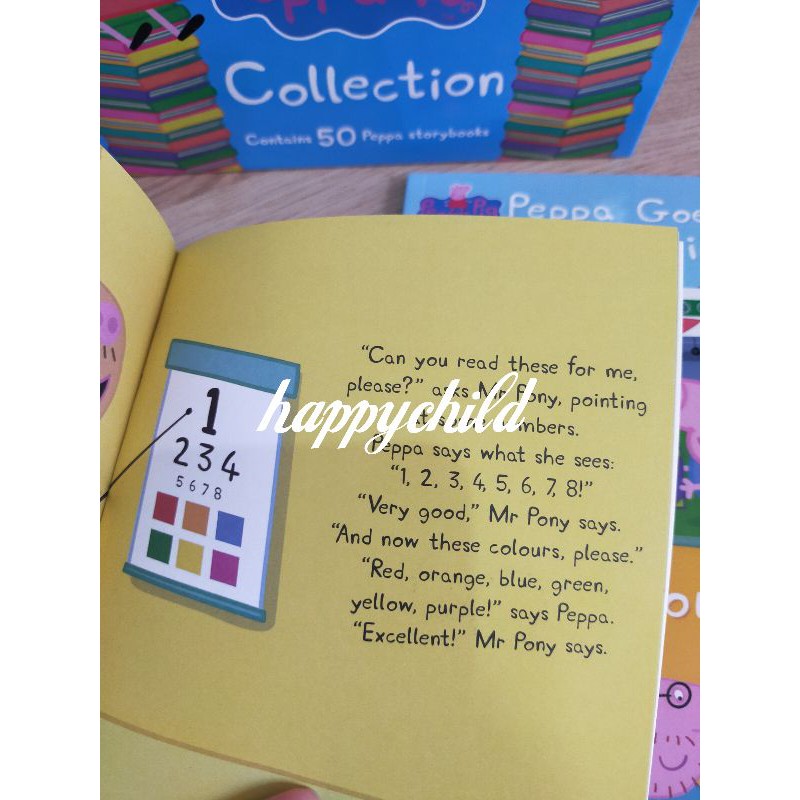 Peppa Pig
Collection
Contains 50 Peppa storybooks
Peppa
1
2 3 4
5 6 7 8
"Can you read these for me,
please?" asks Mr Pony, pointing
at some numbers.
Peppa says what she sees:
"1, 2, 3, 4, 5, 6, 7, 8!"
"Very good," Mr Pony says.
"And now these colours, please."
"Red, orange, blue, green,
yellow, purple!" says Peppa.
"Excellent!" Mr Pony says.
happychild